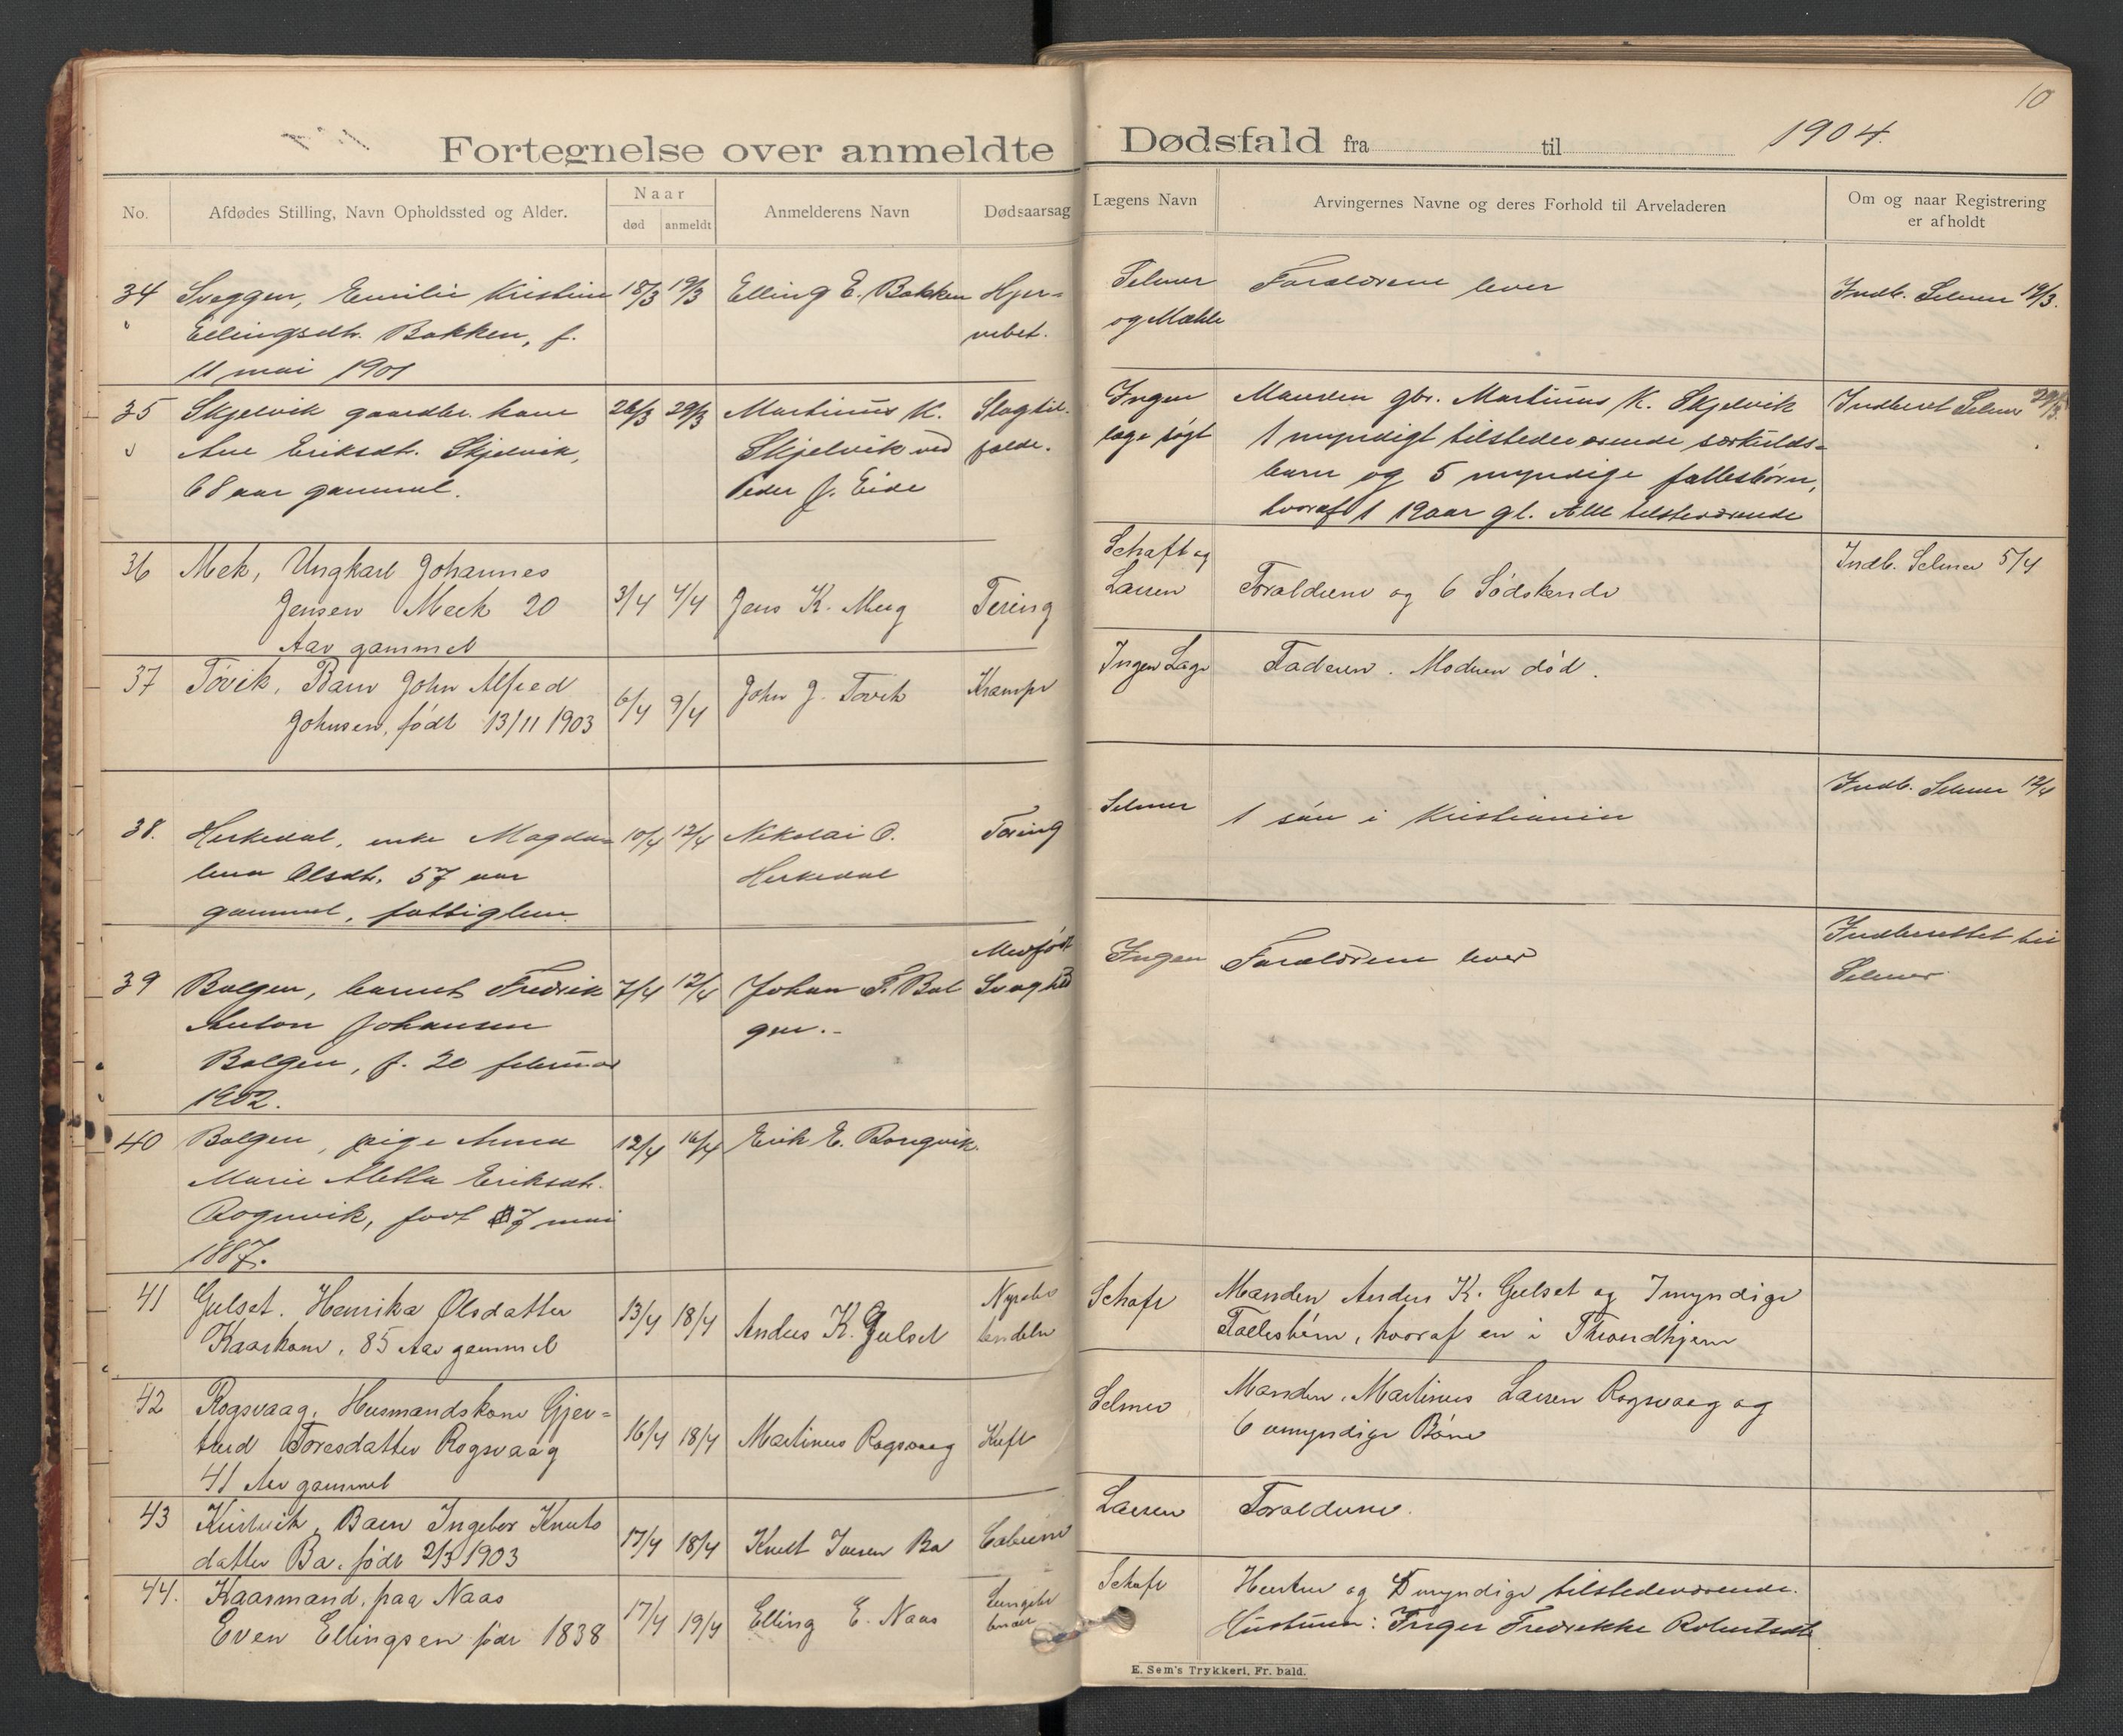 10
Fortegnelse over anmeldte Dødsfald fra til 1904.
No.
Afdødes Stilling, Navn Opholdssted og Alder.
Naar
død
anmeldt
Anmelderens Navn
Dødsaarsag
Lægens Navn
Arvingernes Navne og deres Forhold til Arveladeren
Om og naar Registrering
er afholdt
34 Sveggen, Emilie Kristine 18/3 19/3 Elling E. Bakken Hjer=
Ellingsdtr. Bakken, f. nebet.
11 mai 1901
Selmer Forældrene lever Indb. Selmer 19/3.
og Mæhle
35 Skjelvik gaardbr. kone 28/3 29/3 Martinus K. Slagtil-
Ane Eriksdt. Skjelvik, Skjelvik ved fælde.
68 aar gammel. Peder J. Eide
Ingen Manden gbr. Martinus K. Skjelvik Indberet Selmer 29/3.
læge søgt 1 myndigt tilstedeværende særkulds=
barn og 5 myndige fællesbørn,
hvoraf 1 19 aar gl. Alle tilsteværende
36 Mek, Ungkarl Johannes
Jensen Meek 20 3/4 4/4 Jens K. Meeg Tering
Aar gammel
Schaft og Indb. Selmer 5/4
Larsen Forældrene og 6 Sødskende
37 Tøvik, Barn John Alfred 6/4 9/4 John J. Tøvik Krampe
Johnsen, født 13/11 1903
Ingen Læge Faderen. Moderen død.
38. Herkedal, enke Magda= 10/4 12/4 Nikolai O. Tæring
lena Olsdtr. 57 aar Herkedal
gammel, fattiglem.
Selmer 1 søn i Kristiania Indb. Selmer 12/4
Medfødt
39 Bolgen, barnet Fredrik 7/4 12/4 Johan F. Bol Svaghed
Anton Johansen gen.-
Bolgen, f. 20 februar
1902.
Ingen Forældrene lever Indberettet til
Selmer
40 Bolgen, pige Anna 12/4 16/4 Erik E. Rongvik.
Marie Aletta Eriksdtr.
Rognvik, født 7 mai
1887.
41 Gulset. Henrika Olsdatter 13/4 18/4 Anders K. Gulset
Kaarkone, 85 Aar gammel
Schaft Manden Anders K. Gulset og 7 myndige
Fællesbørn, hvoraf en i Throndhjem
42 Rogsvaag, Husmandskone Gjer=
trud Toresdatter Rogsvaag 16/4 18/4 Martinus Rogsvaag Kræft
41 Aar gammel
Selmer Manden, Martinus Larsen Rogsvaag og
6 umyndige Børn
43 Kirstvik, Barn Ingebor Knuts
datter Ba. født 2/3 1903 17/4 18/4 Knut Iversen Ba
Larsen Forældrene.
44. Kaarmand, paa Naas
Even Ellingsen født 1838 17/4 19/4 Elling E. Naas
Schaft Hustru og myndige tilstedeværende.
Hustruen: Inger Fredrikke Robertsdtr
E. Sem's Trykkeri, Fr. hald.